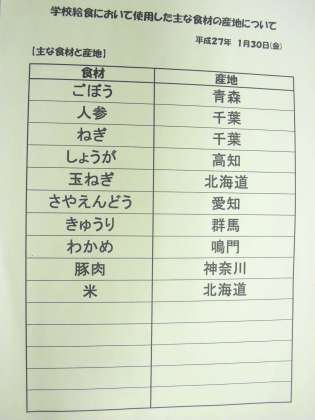 学校給食において使用した主な食材の産地について
平成27年 1月30日(金)
【主な食材と産地】
食材 産地
ごぼう 青森
人参 千葉
ねぎ 千葉
しょうが 高知
玉ねぎ 北海道
さやえんどう 愛知
きゅうり 群馬
わかめ 鳴門
豚肉 神奈川
米 北海道